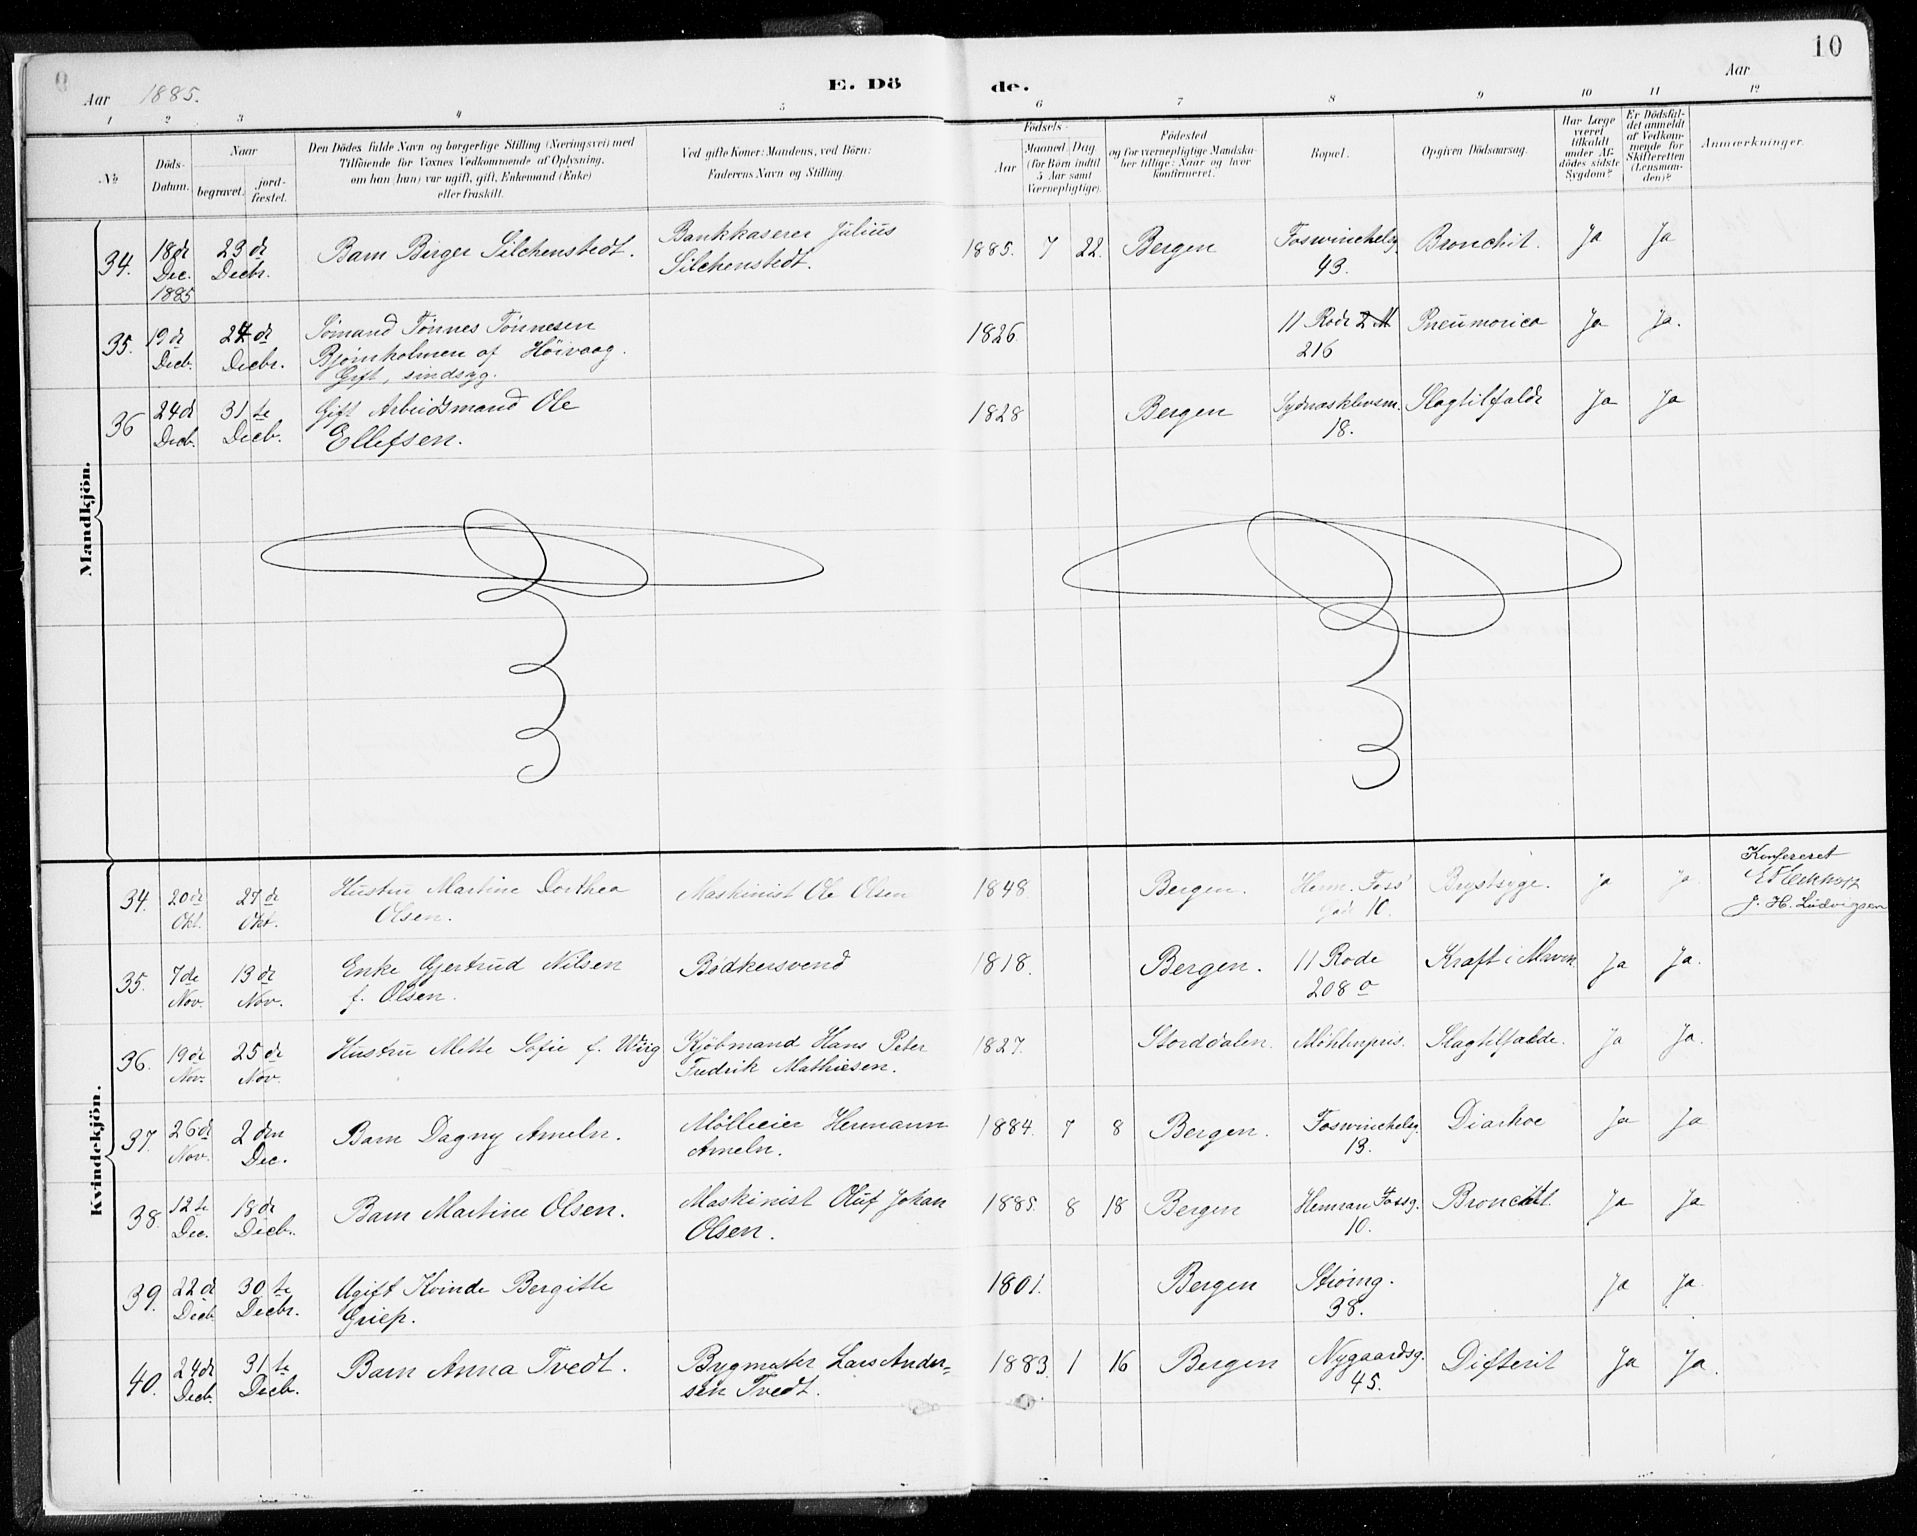 10
Aar 1885. E. Dö de. Aar
1 2 3 4 5 6 7 8 9 10 11 12
№ Döds-Datum. Naar begravet. jord-fæstet. Den Dödes fulde Navn og borgerlige Stilling (Næringsvei) med Tilföiende for Voxnes Vedkommende af Oplysning, om han (hun) var ugift, gift, Enkemand (Enke) eller fraskilt. Ved gifte Koner: Mandens, ved Börn: Faderens Navn og Stilling. Födsels- Aar Maaned Dag (for Börn indtil 5 Aar samt Værnepligtige). Födested og for værnepligtige Mandskaber tillige: Naar og hvor konfirmeret. Bopæl. Opgiven Dödsaarsag. Har Læge været tilkaldt under Afdödes sidste Sygdom? Er Dödsfaldet anmeldt af Vedkommende for Skifteretten (Lensmanden)? Anmærkninger.
Mandkjön.
34. 18de Dec. 1885 23 de Decbr. Barn Birger Silchenstedt. Bankkaserer Julius Silchenstedt. 1885. 7 22. Bergen Foswinchelsg. 43. Bronchit. Ja Ja
35. 19 de Decb. 24 de Decbr. Sømand Tønnes Tønnesen Bjørnholmen af Høivaag. Gift, sindsyg. 1826 11 Rode 216 Pneumonica Ja Ja.
36 24 de Decb. 31 te Decb. Gift Arbeidsmand Ole Ellefsen. 1828 Bergen Sydnæsklevsm. 18. Slagtilfælde Ja Ja
Kvindekjön.
34. 20 de Okt. 27 de Okt. Hustru Martine Dorthea Olsen. Maskinist Ole Olsen 1848 Bergen. Herm. Foss' Gade 10. Brystsyge. Ja Ja. Konfereret J. H. Ludvigsen
35. 7 de Nov. 13 de Nov. Enke Gjertrud Nilsen f. Olsen. Bødkersvend 1818. Bergen. 11 Rode 208 a Kraft i Maven Ja Ja.
36. 19 de Nov. 25 de Nov. Hustru Mette Sofie f. Wiig Kjøbmand Hans Peter Fredrik Mathiesen. 1827. Storddalen. Møhlenpris. Slagtilfælde. Ja Ja.
37. 26 de Nov. 2 den Dec. Barn Dagny Ameln. Mølleeier Hermann Ameln. 1884. 7 8 Bergen. Foswinchelsg. 13. Diarhoe Ja Ja
38. 12 te Dec. 18 de Decb. Barn Martine Olsen. Maskinist Oluf Johan Olsen. 1885. 8 18 Bergen Herman Fossg. 10. Bronchit. Ja Ja
39. 22 de Decb. 30 te Decbr. Ugift Kvinde Bergitte Griep. 1801. Bergen Strømg. 38. Ja Ja.
40. 24 de Decb. 31 te Decb. Barn Anna Tvedt. Bygmester Lars Andersen Tvedt. 1883. 1 16 Bergen Nygaardsg. 45. Difterit Ja Ja.